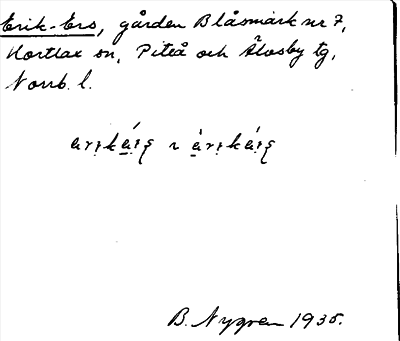 Erik-Ers, gården Blåsmark nr 7,
Hortlax sn, Piteå och Älvsby tg,
Norrb. l.
B. Nygren 1935.